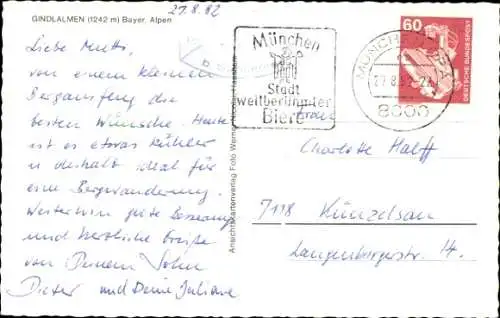 GINDLALMEN (1242 m) Bayer. Alpen
27.8.82
Liebe Mutti,
von einem kleinen
Bergausflug die
besten Wünsche. Heute
ist es etwas kühler
u. deshalb ideal für
eine Bergwanderung.
Weiterhin gute Besserung
und herzliche Grüße
von Deinem Sohn
Dieter und Deine Juliane
Ansichtskartenverlag Foto
München
Stadt
weltberühmter
Biere
MÜNCHEN
27.8.82
8000
60
DEUTSCHE BUNDESPOST
Frau
Charlotte Halff
7118 Künzelsau
Langenburgerstr. 14.